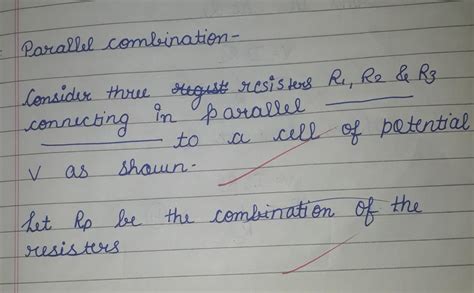 Parallel combination-
Consider three resisters R1, R2 & R3
connecting in parallel
to a cell of potential
V as shown.
Let Rp be the combination of the
resisters